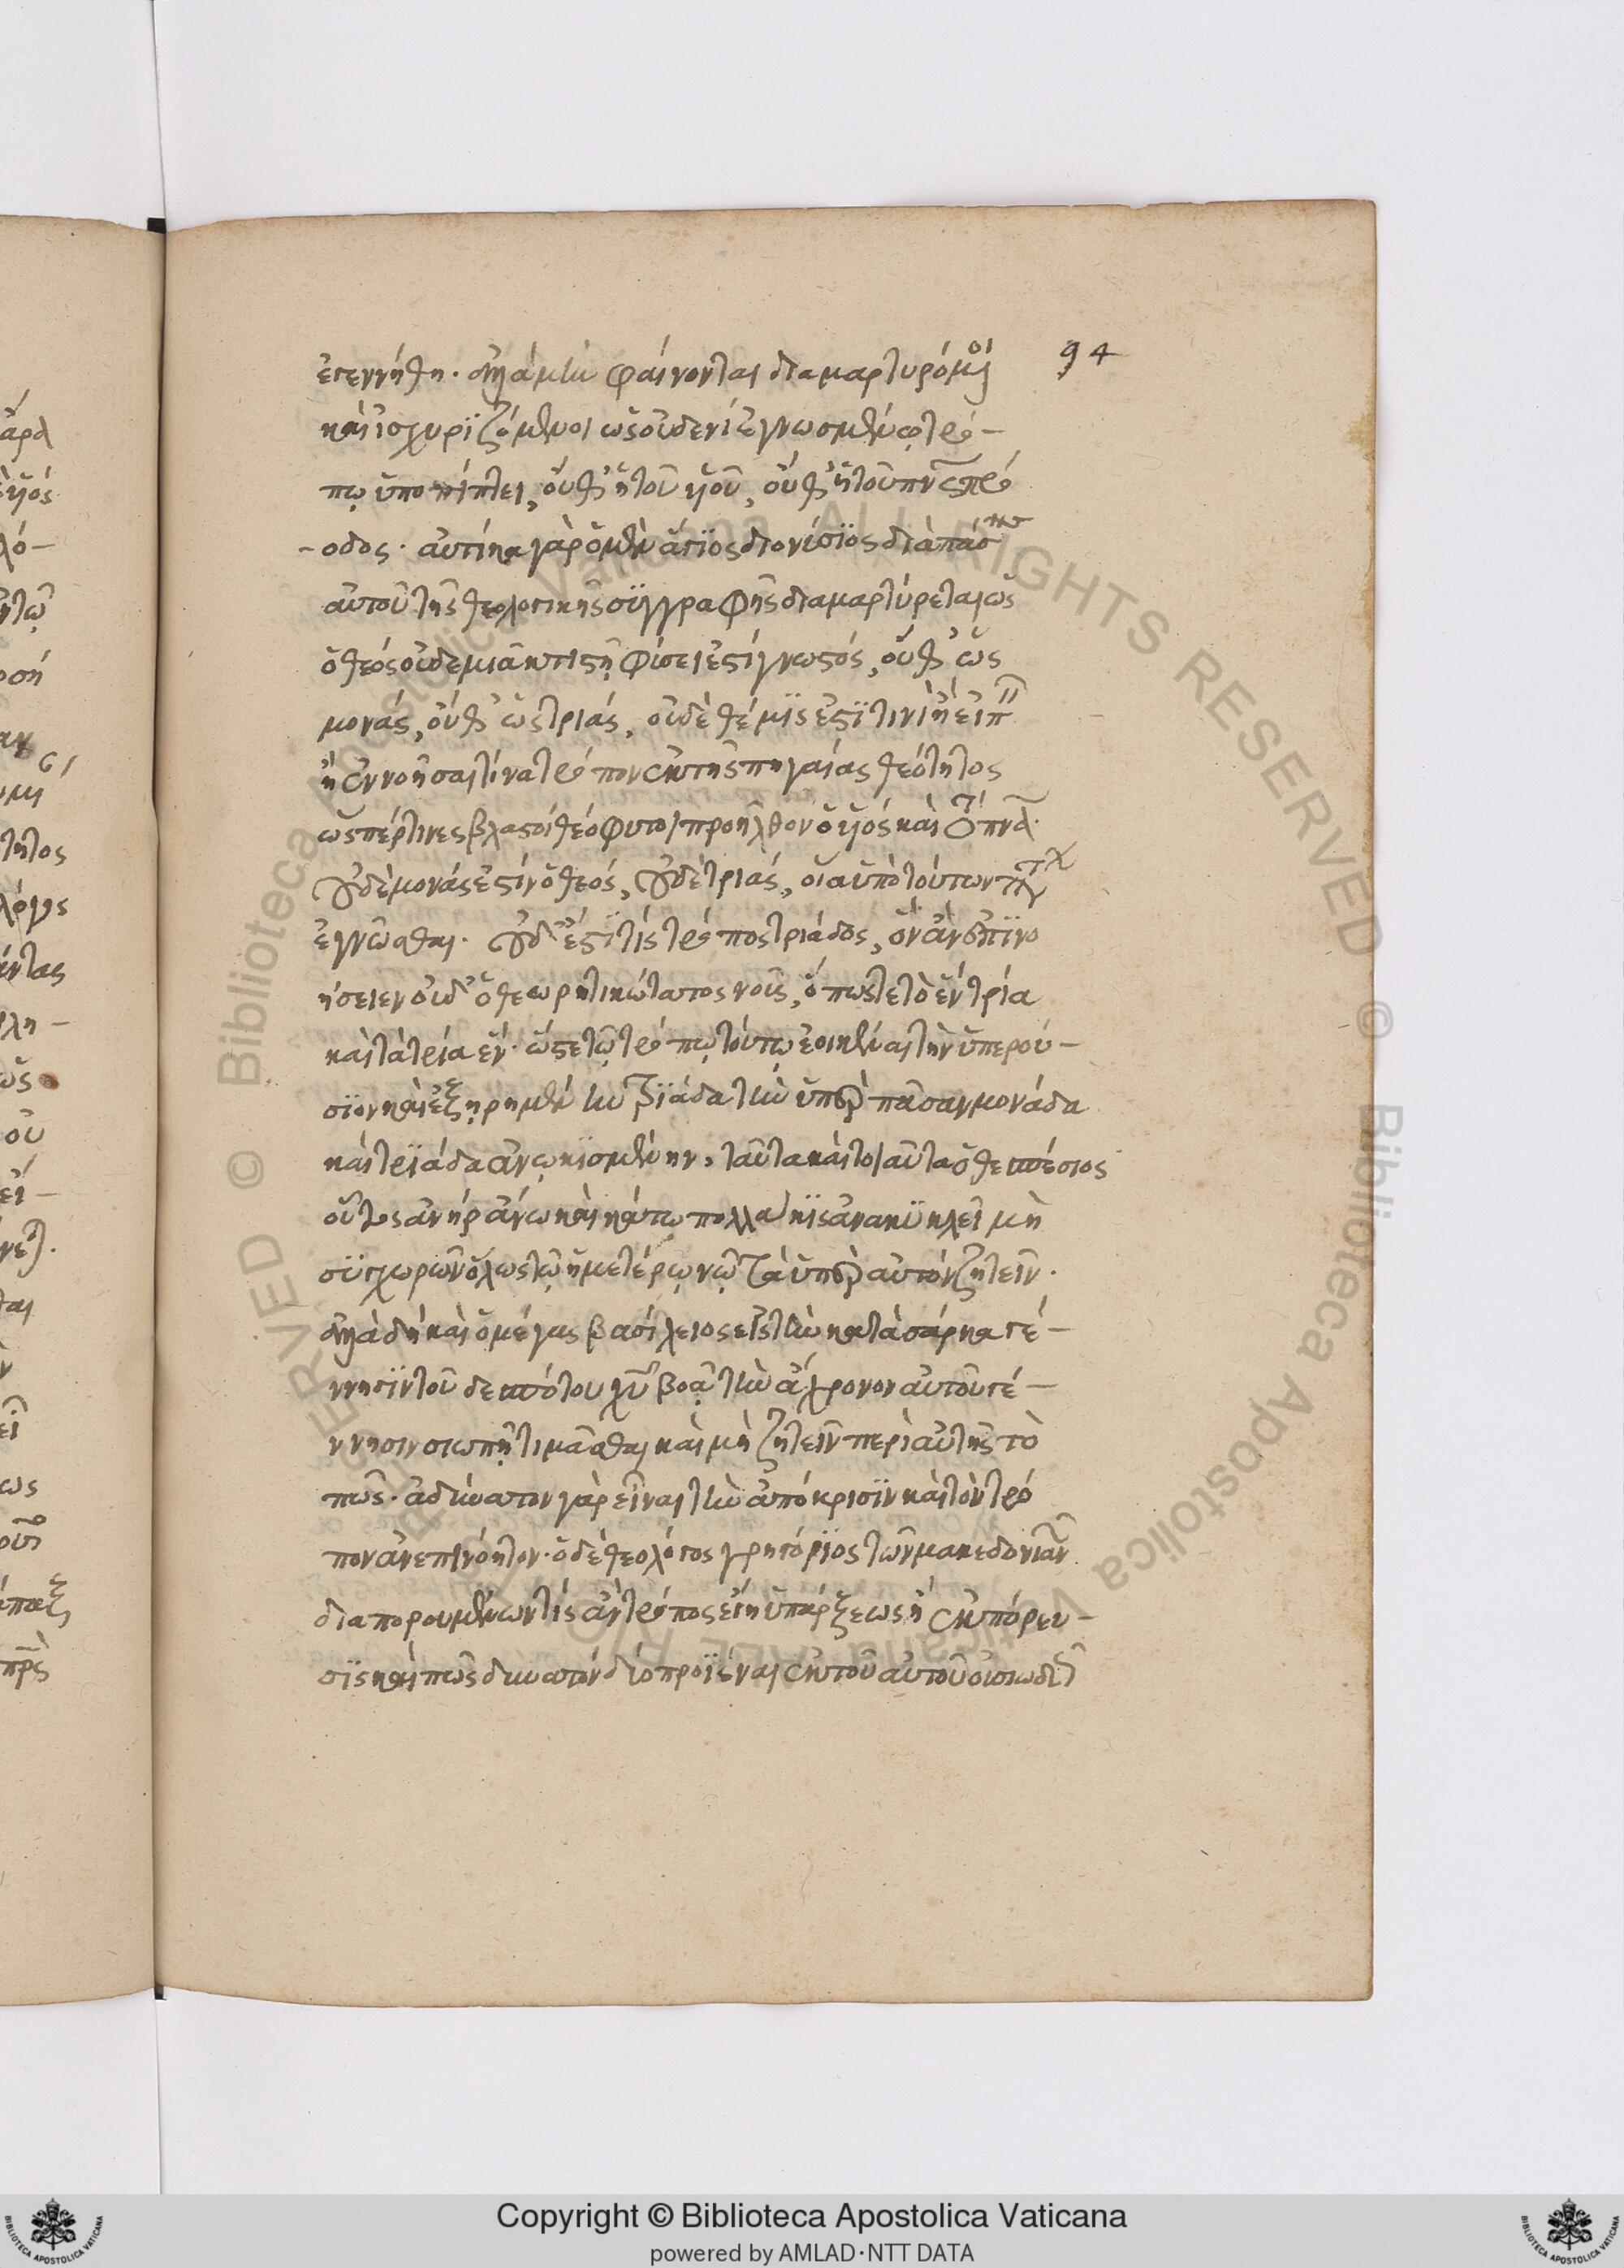 94
ἐγεννήθη. ἀλλὰ μὴν φαίνονται διαμαρτυρόμενοι
καὶ ἰσχυριζόμενοι ὡς οὐδενὶ ἐγνωσμένῳ τρό-
πῳ ὑποπίπτει, οὔθ' ἡ τοῦ υἱοῦ, οὔθ' ἡ τοῦ πνς πρό
-οδος. αὐτίκα γὰρ ὁ μὲν ἅγιος διονύσιος διὰ πάσης
αὐτοῦ τῆς θεολογικῆς συγγραφῆς διαμαρτύρεται ὡς
ὁ θεὸς οὐδεμιᾷ κτιστῇ φύσει ἐστὶ γνωστός, οὔθ' ὡς
μονάς, οὔθ' ὡς τριάς, οὐδὲ θέμις ἐστί τινι ἢ εἰπεῖν
ἢ ἐννοῆσαι τίνα τρόπον ἐκ τῆς πηγαίας θεότητος
ὥσπερ τινες βλαστοὶ θεόφυτοι προῆλθον ὁ υἱός καὶ τὸ πνα.
οὐδὲ μονάς ἐστιν ὁ θεός, οὐδὲ τριάς, οἵα ὑπὸ τούτων
ἐγνῶσθαι. οὐδ' ἔστι τίς τρόπος τριάδος, ὃν ἂν ἐπινο
ήσειεν οὐδ' ὁ θεωρητικώτατος νοῦς, ὅπως τε τὸ ἓν τρία
καὶ τὰ τρία ἕν. ὥστε τῷ τρόπῳ τούτῳ ἐοικέναι τὴν ὑπερού-
σιον καὶ ἐξῃρημένην τριάδα τὴν ὑπὲρ πᾶσαν μονάδα
καὶ τριάδα ἀνῳκισμένην, ταῦτα καὶ τοιαῦτα ὁ θεσπέσιος
οὗτος ἀνὴρ ἄνω καὶ κάτω πολλάκις ἀνακυκλεῖ μὴ
συγχωρῶν ὅλως τῷ ἡμετέρῳ νῷ τὰ ὑπὲρ αὐτὸν ζητεῖν.
ἀλλὰ δὴ καὶ ὁ μέγας βασίλειος εἰς τὴν κατὰ σάρκα γέ-
ννησιν τοῦ δεσπότου χυ βοᾷ τὴν ἄχρονον αὐτοῦ γέ-
ννησιν σιωπῇ τιμᾶσθαι καὶ μὴ ζητεῖν περὶ αὐτῆς τὸ
πῶς. ἀδύνατον γὰρ εἶναι τὴν ἀπόκρισιν καὶ τὸν τρό
πον ἀνεπινόητον. ὁ δὲ θεολόγος γρηγόριος τῶν μακεδονιανῶν
διαπορουμένων τίς ἂν τρόπος εἴη ὑπάρξεως ἡ ἐκπόρευ-
σις καὶ πῶς δυνατὸν δύο προϊέναι ἐκ τοῦ αὐτοῦ οὐσιωδῶς
Copyright © Biblioteca Apostolica Vaticana
powered by AMLAD·NTT DATA